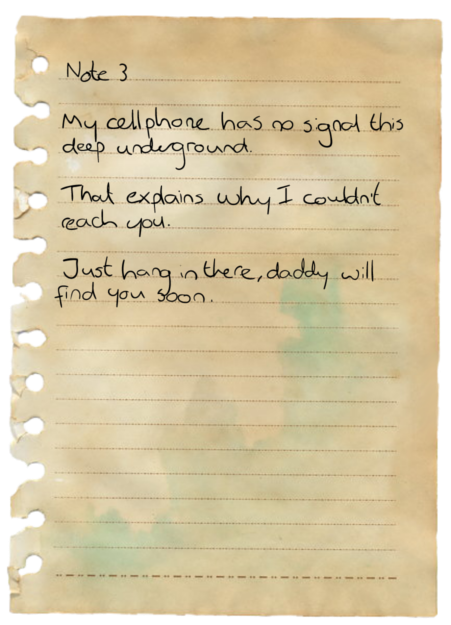 Note 3
My cellphone has no signal this
deep underground.
That explains why I couldn't
reach you.
Just hang in there, daddy will
find you soon.